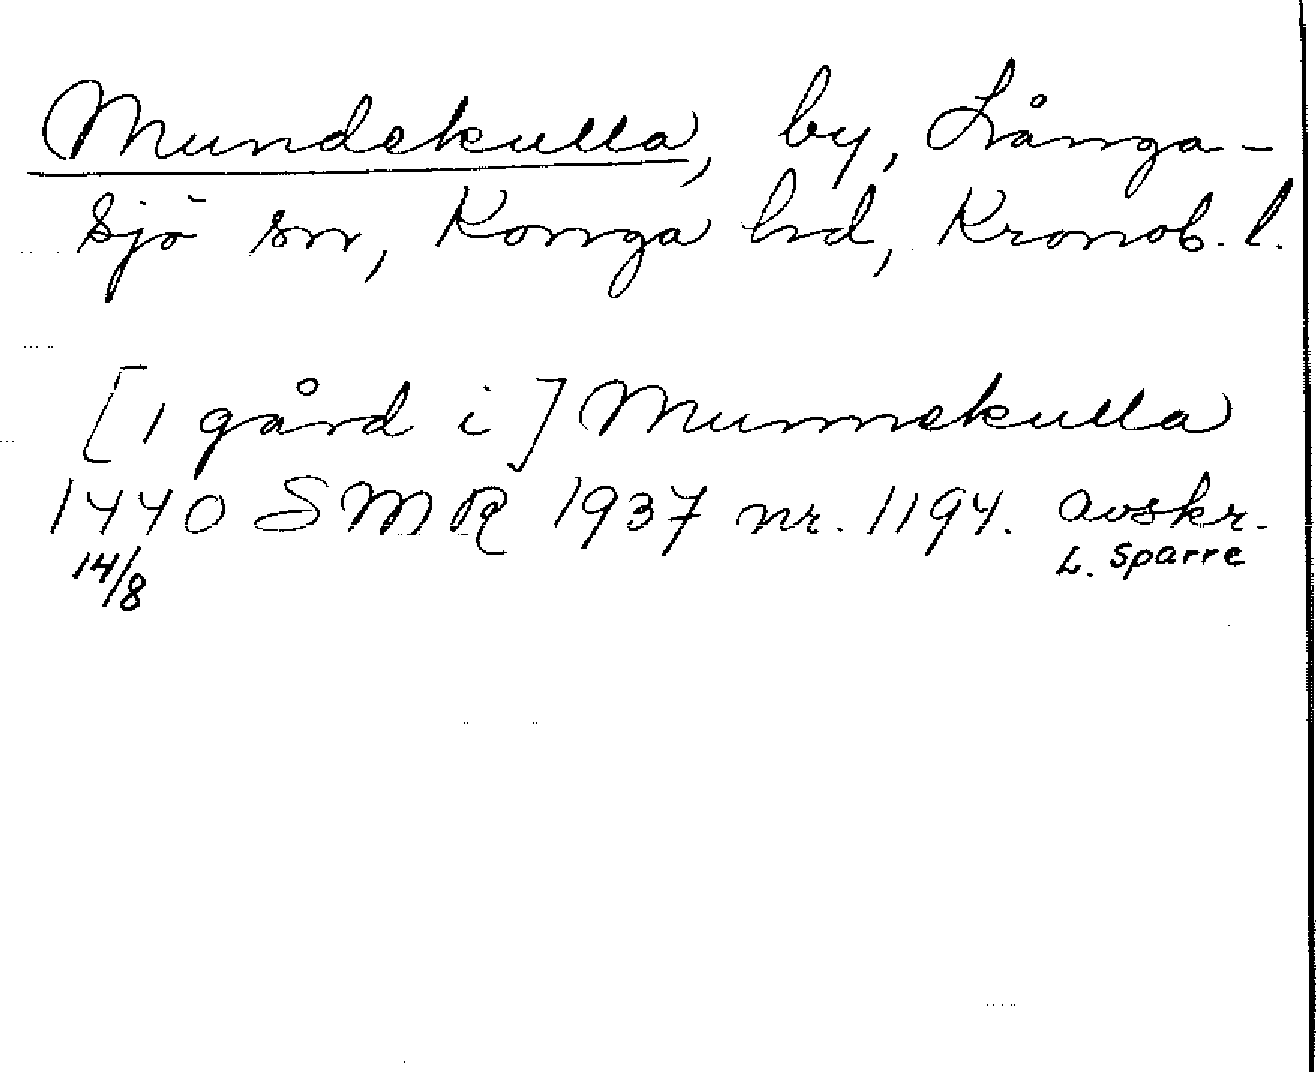 Mundekulla, by, Långa-
sjö sn, Konga hd, Kronob. l.
[1 gård i] Munnekulla
1440 SMR 1937 nr. 1194. avskr.
14/8 L. Sparre